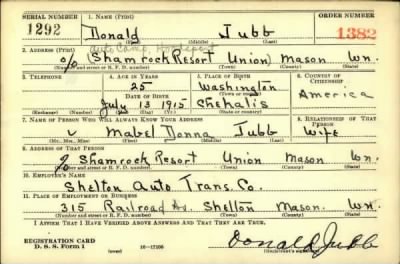 SERIAL NUMBER 1. NAME (Print) ORDER NUMBER
1292 Donald Jubb 1382
(First) (Middle) (Last)
2. ADDRESS (Print) Auto Camp,
c/o (Shamrock Resort Union) Mason Wn.
(Number and street or R. F. D. number) (Town) (County) (State)
3. TELEPHONE 4. AGE IN YEARS 5. PLACE OF BIRTH 6. COUNTRY OF CITIZENSHIP
25 Washington
DATE OF BIRTH America
July 13 1915 Chehalis
(Exchange) (Number) (Mo.) (Day) (Yr.) (State or country)
7. NAME OF PERSON WHO WILL ALWAYS KNOW YOUR ADDRESS 8. RELATIONSHIP OF THAT PERSON
Mabel Donna Jubb Wife
(Mr., Mrs., Miss) (First) (Middle) (Last)
9. ADDRESS OF THAT PERSON
c/o Shamrock Resort Union Mason Wn
(Number and street or R. F. D. number) (Town) (County) (State)
10. EMPLOYER'S NAME
Shelton Auto Trans. Co.
11. PLACE OF EMPLOYMENT OR BUSINESS
315 Railroad Av. Shelton Mason. Wn.
(Number and street or R. F. D. number) (Town) (County) (State)
I AFFIRM THAT I HAVE VERIFIED ABOVE ANSWERS AND THAT THEY ARE TRUE.
REGISTRATION CARD
D. S. S. Form 1 (over) 16-17105 Donald Jubb
(Registrant's signature)